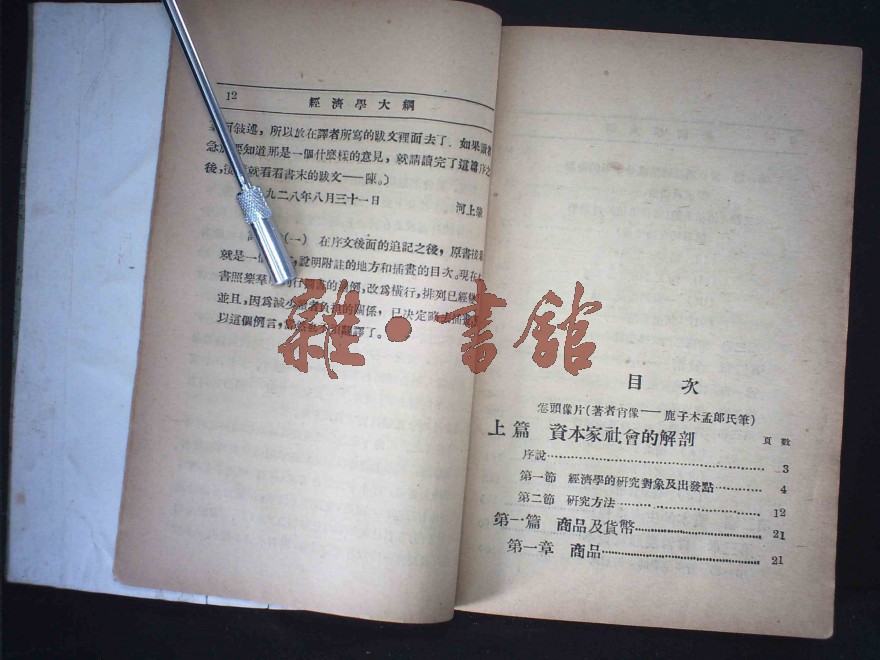 12
經濟學大綱
而敍述，所以放在譯者所寫的跋文裡面去了．如果讀者
急於要知道那是一個什麽樣的意見，就請讀完了這篇序之
後，就看看書末的跋文——陳。）
九二八年八月三十一日
河上肇
（一） 在序文後面的追記之後，原書接着
就是一個，說明附註的地方和插畫的目次。現在
書照樂羣例，改爲橫行，排列已經
並且，因爲減少讀者負担的關係，已決定略去插畫
以這個例言，譯了。
雜·書舘
目 次
卷頭像片（著者肖像——鹿子木孟郎氏筆）
上篇 資本家社會的解剖 頁數
序說 3
第一節 經濟學的硏究對象及出發點 4
第二節 硏究方法 12
第一篇 商品及貨幣 21
第一章 商品 21